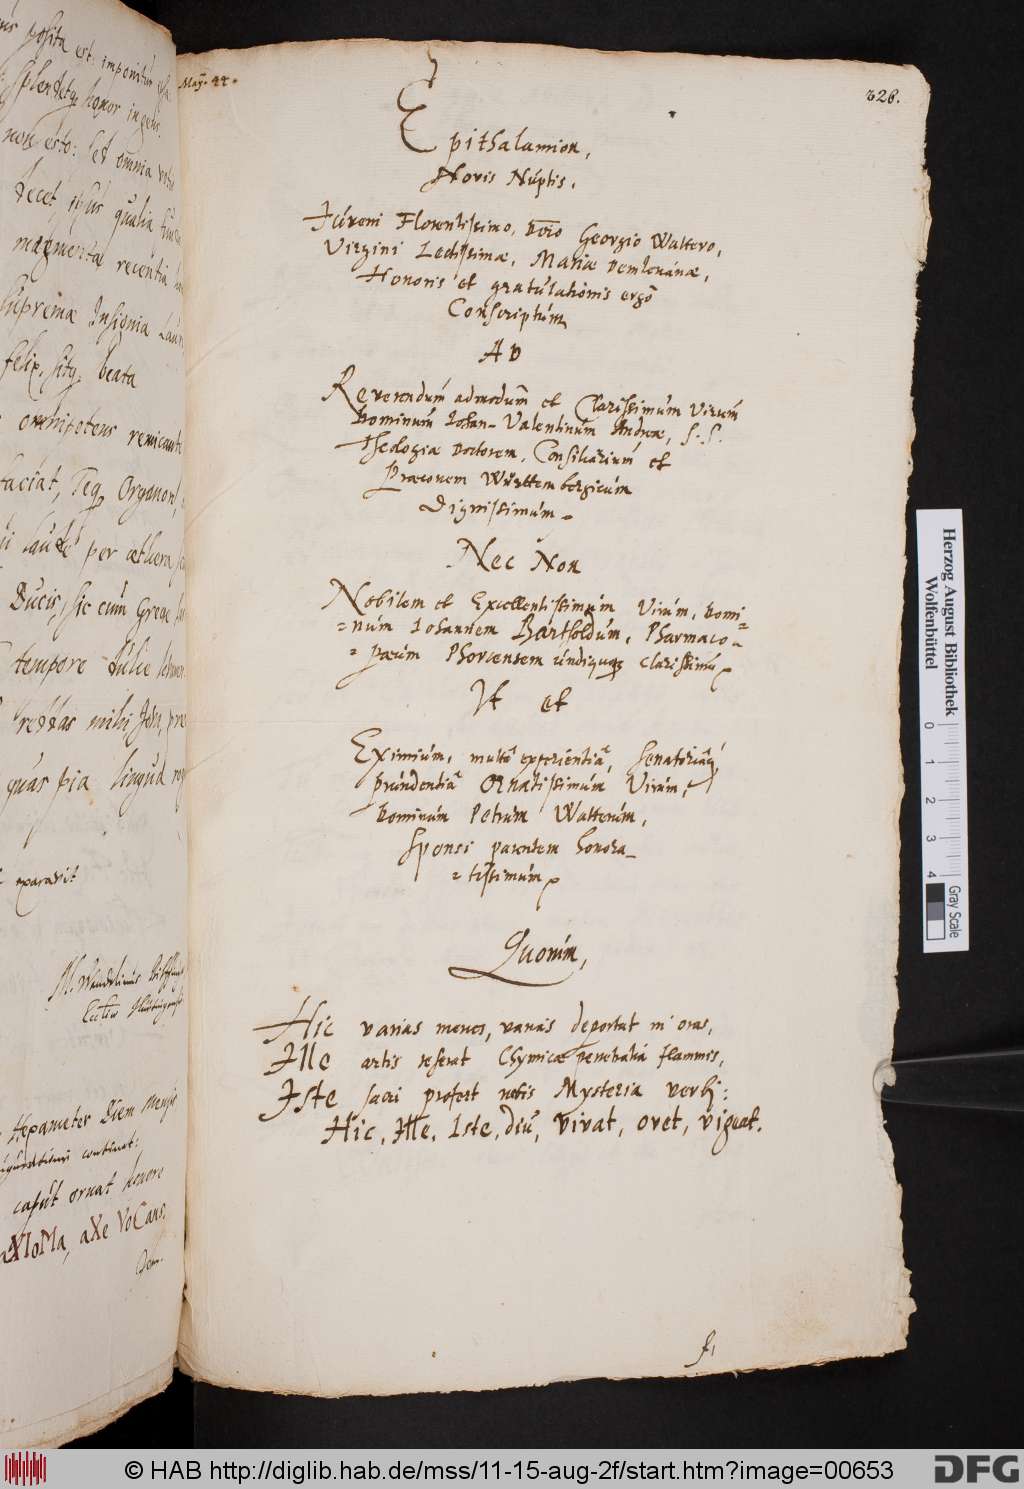 ús posita est: imponitur
splendetq honor ingens.
non esto: set omnia
decet, ipsis qualia
magmenta recentia
supremæ Insignia
felix, sitq, beata
omnipotens
faciat, Teq Organon
laude per æthera
Ducis, sic cum
tempore Julie
reddas mihi
quas pia lingua
exaravit
Hexameter Diem mensis
continet:
caput ornat honore
XIoMa, aXe VoCans.
May. 22.
326.
Epithalamion,
Novis Nuptis.
Juveni Florentissimo, Dno Georgio Waltero,
Virgini Lectissimæ, Mariæ Demlerianæ,
Honoris et gratulationis ergò
Conscriptum
AD
Reverendum admodum et Clarissimum Virum
Dominum Johan- Valentinum Andreæ, S. S.
Theologiæ Doctorem, Consiliarium et
Præconem Württembergicum
Dignissimum.
Nec Non
Nobilem et Excellentissimum Virum, Domi=
=num Johannem Bartholdum, Pharmaco=
=pæum Phorcensem undiquaq Clarissimu
It et
Eximium, multâ experientiâ, Senatoriâq
prundentiâ Ornatissimum Virum,
Dominum Petrum Walterum,
Sponsi parentem honora_
=tissimum
Quorum,
Hic varias merces, varias deportat in oras,
Ille artis referat Chymicæ penetralia flammis,
Iste sacri profert nobis Mysteria verbi:
Hic, Ille, Iste, diu, vivat, ovet, vigeat.
Herzog August Bibliothek
Wolfenbüttel
0 1 2 3 4
Gray Scale
© HAB http://diglib.hab.de/mss/11-15-aug-2f/start.htm?image=00653
DFG